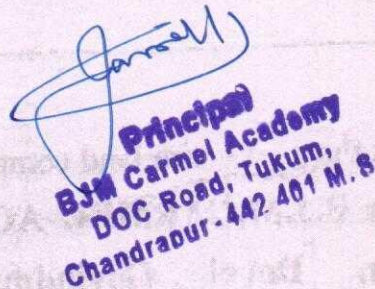 Principal
BJM Carmel Academy
DOC Road, Tukum,
Chandrapur-442 401 M.S